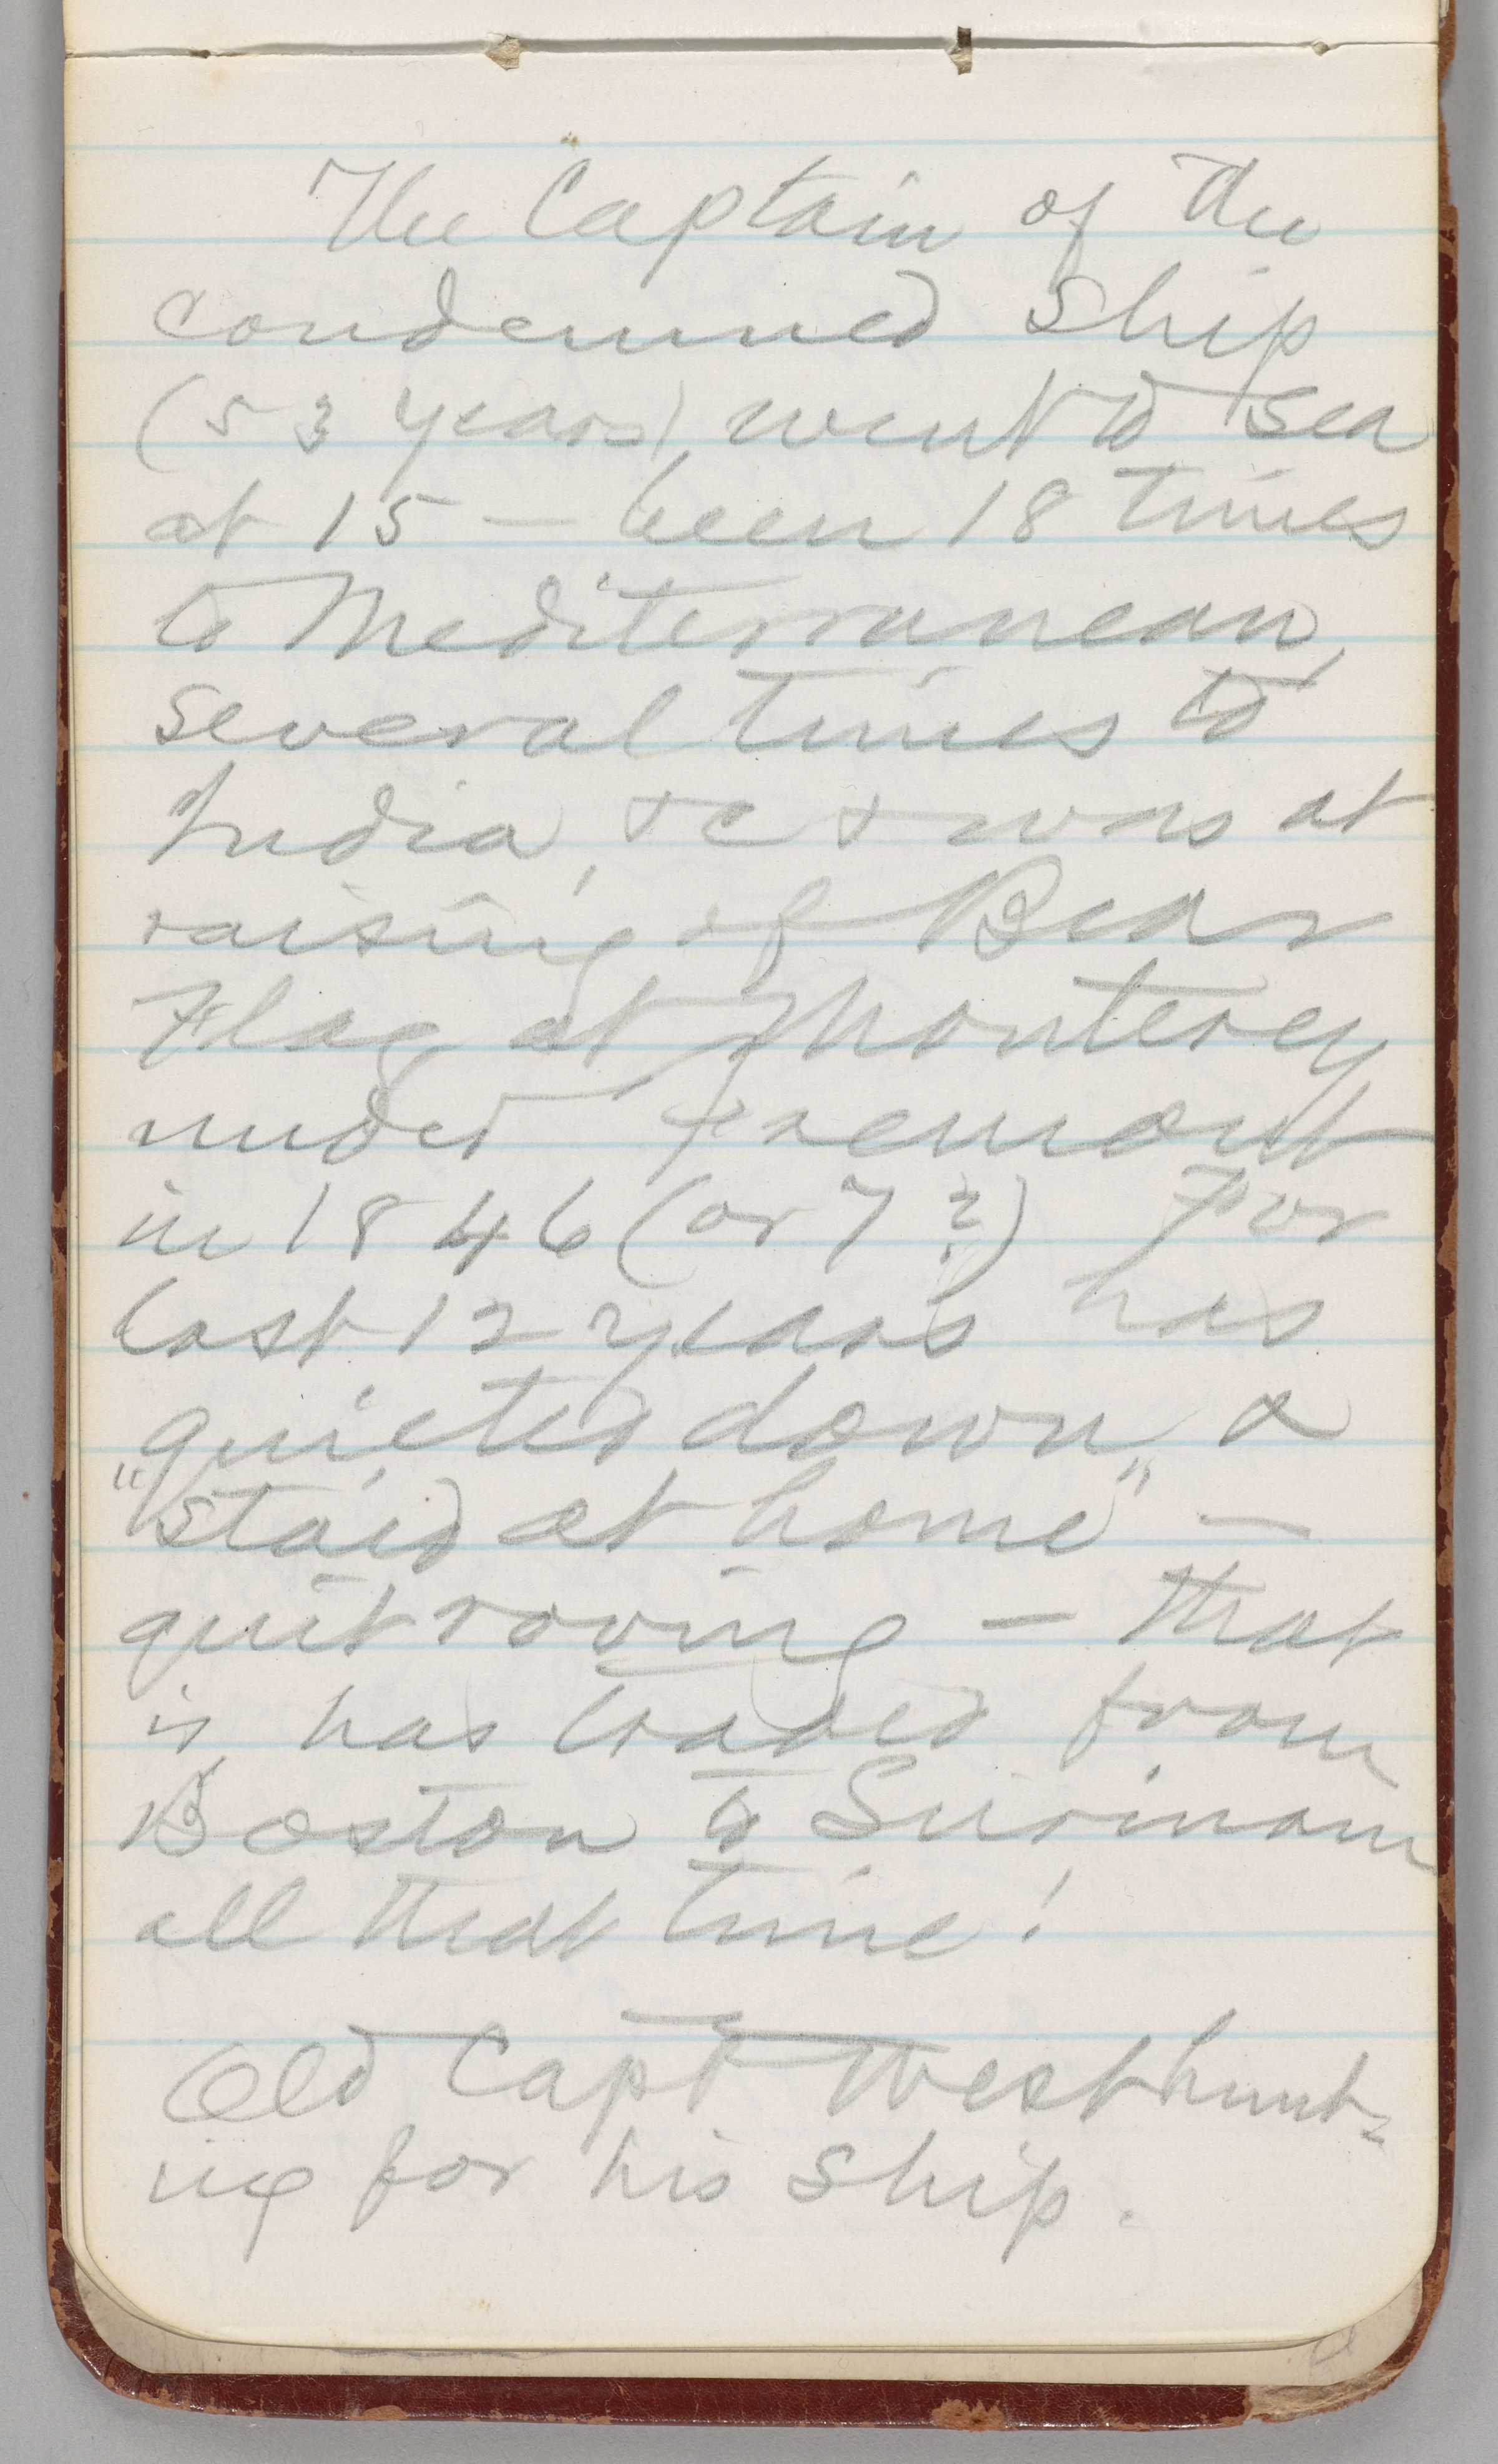 The Captain of the
condemned ship
(53 years) went to sea
at 15 — been 18 times
to Mediterranean,
several times to
India, &c & was at
raising of Bear
Flag at Monterey
under Fremont
in 1846 (or 7?) For
last 12 years has
"quieted down" &
"staid at home" —
quit roving — that
is, has traded from
Boston to Surinam
all that time!
Old Capt West hunt-
ing for his ship.